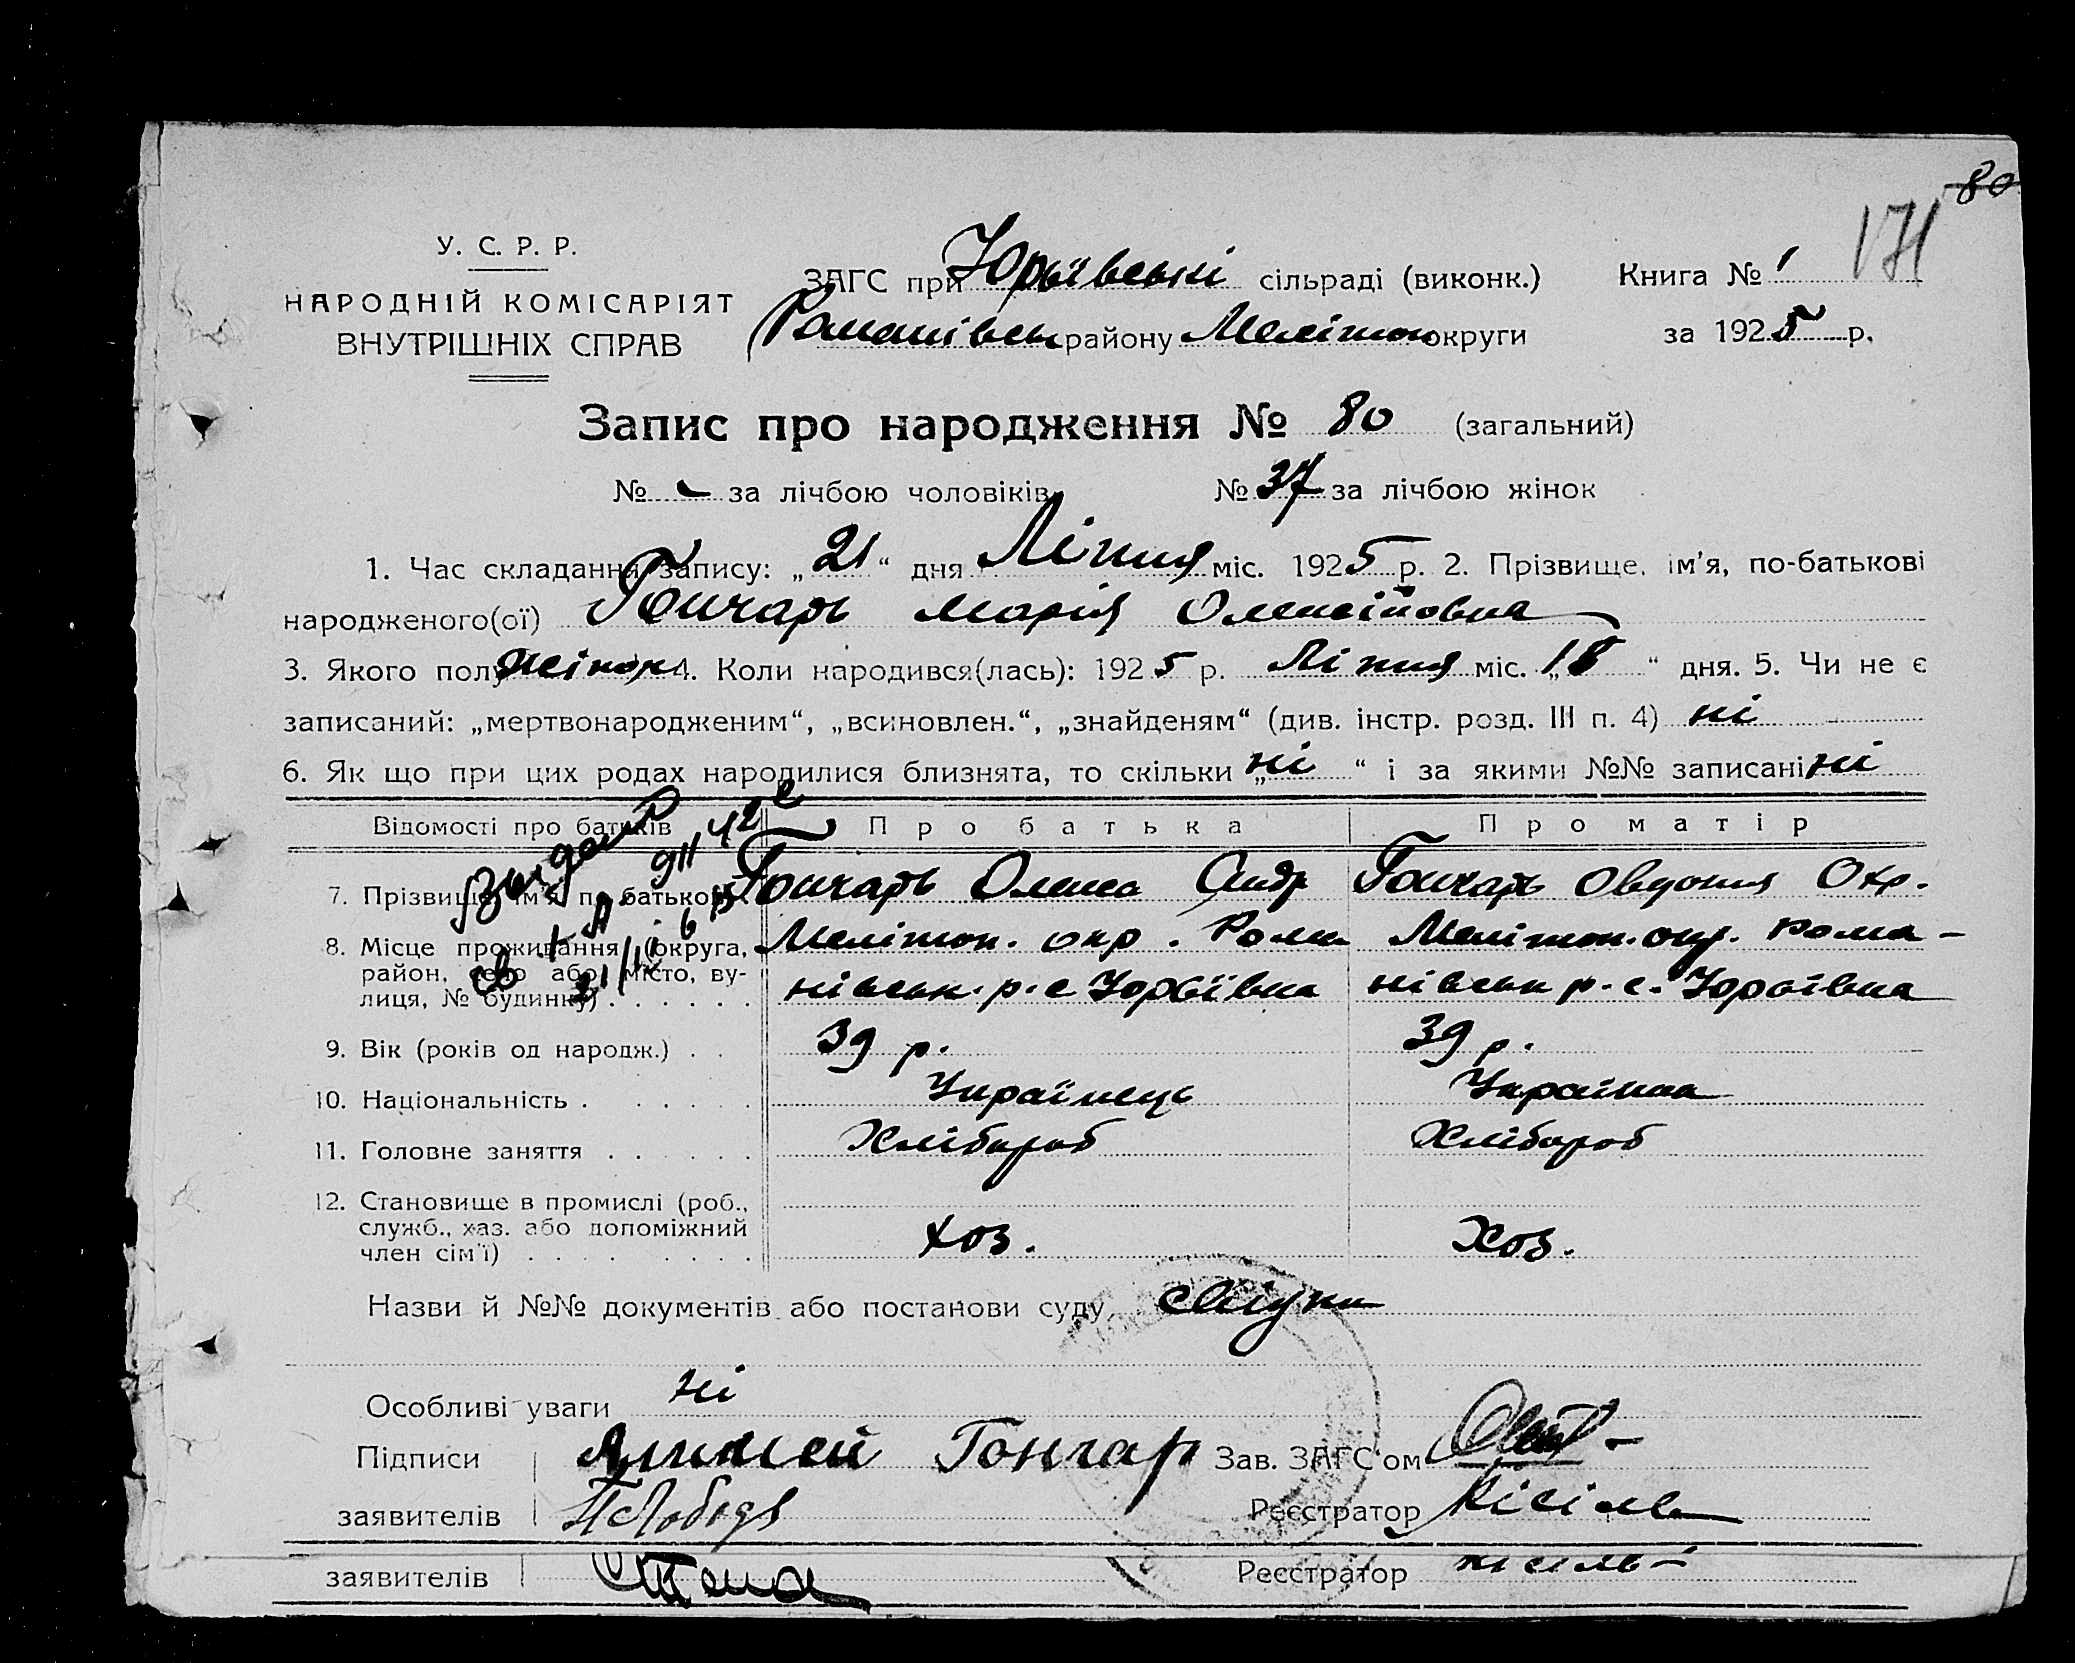 80
171
У. С. Р. Р.
НАРОДНІЙ КОМІСАРІЯТ
ВНУТРІШНІХ СПРАВ
ЗАГС при Юрьївські сільраді (виконк.)
Книга № 1
Романівськ району Мелітоп округи
за 1925 р.
Запис про народження № 80 (загальний)
№ - за лічбою чоловіків № 37 за лічбою жінок
1. Час складання запису: „21“ дня Ліпня міс. 1925 р. 2. Прізвище, ім'я, по-батькові
народженого(ої) Гончарь Марія Олексійовна
3. Якого полу Жіноч 4. Коли народився(лась): 1925 р. Ліпня міс. „18“ дня. 5. Чи не є
записаний: „мертвонародженим“, „всиновлен.“, „знайденям“ (див. інстр. розд. III п. 4) ні
6. Як що при цих родах народилися близнята, то скільки „ні“ і за якими №№ записані ні
Відомості про батьків Про батька Про матір
7. Прізвище, ім'я, по батькові Гончарь Олекса Андр Гончарь Овдотия Охр.
8. Місце проживання (округа, Мелітоп. окр. Рома Мелітоп. окр. Рома-
район, село або місто, ву-
лиця, № будинку) нівськ. р. с Юрьївка нівськ р. с. Юрьївка
9. Вік (років од народж.) 39 р. 39 р.
10. Національність Українець Українка
11. Головне заняття Хлібороб Хлібороб
12. Становище в промислі (роб.,
служб., хаз. або допоміжний
член сім'ї) хоз. Хоз.
Назви й №№ документів або постанови суду
Особливі уваги ні
Підписи Гончар Зав. ЗАГС'ом
заявителів Реєстратор Кісіль
заявителів Реєстратор кісіль